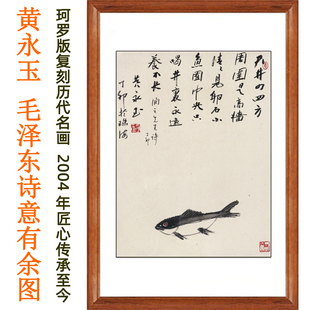 黄永玉 毛泽东诗意有余图
珂罗版复刻历代名画 2004年匠心传承至今
天井四四方
周围是高墙
清清见卵石小
鱼囿中央只
养不长
黄永玉
丁卯於珠海